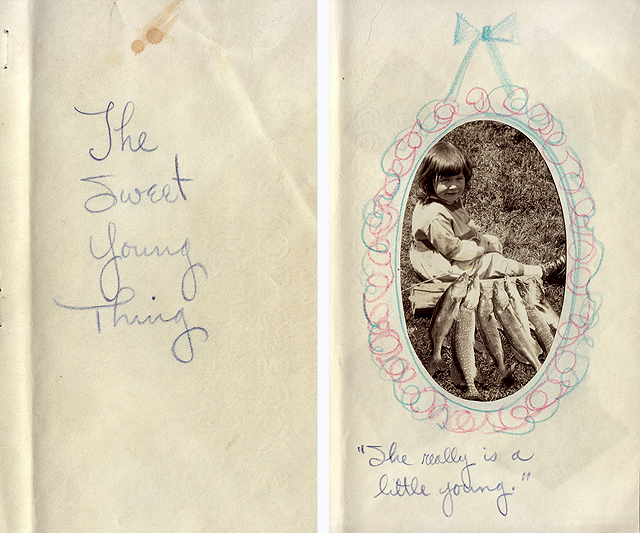 The
Sweet
Young
Thing
"She really is a
little young."